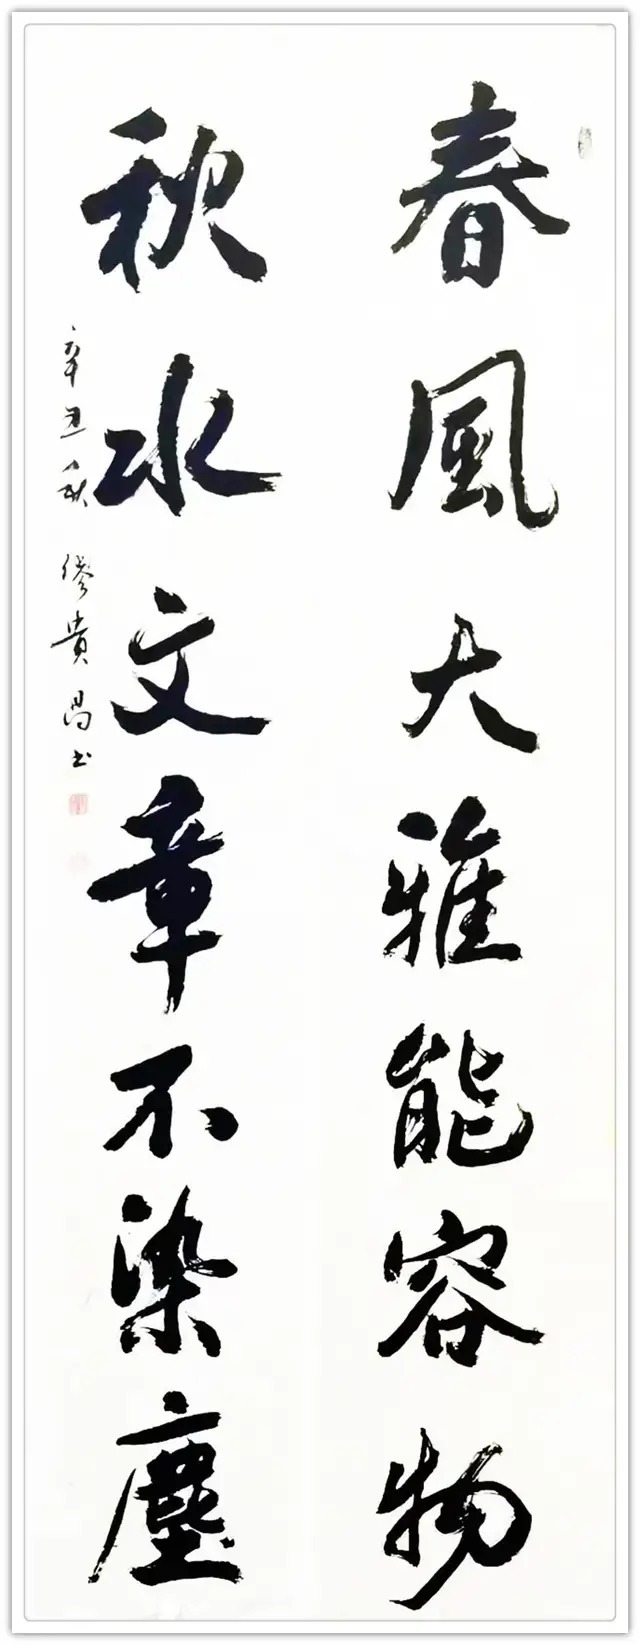 春風大雅能容物
秋水文章不染塵
辛丑秋 缪貴昌书